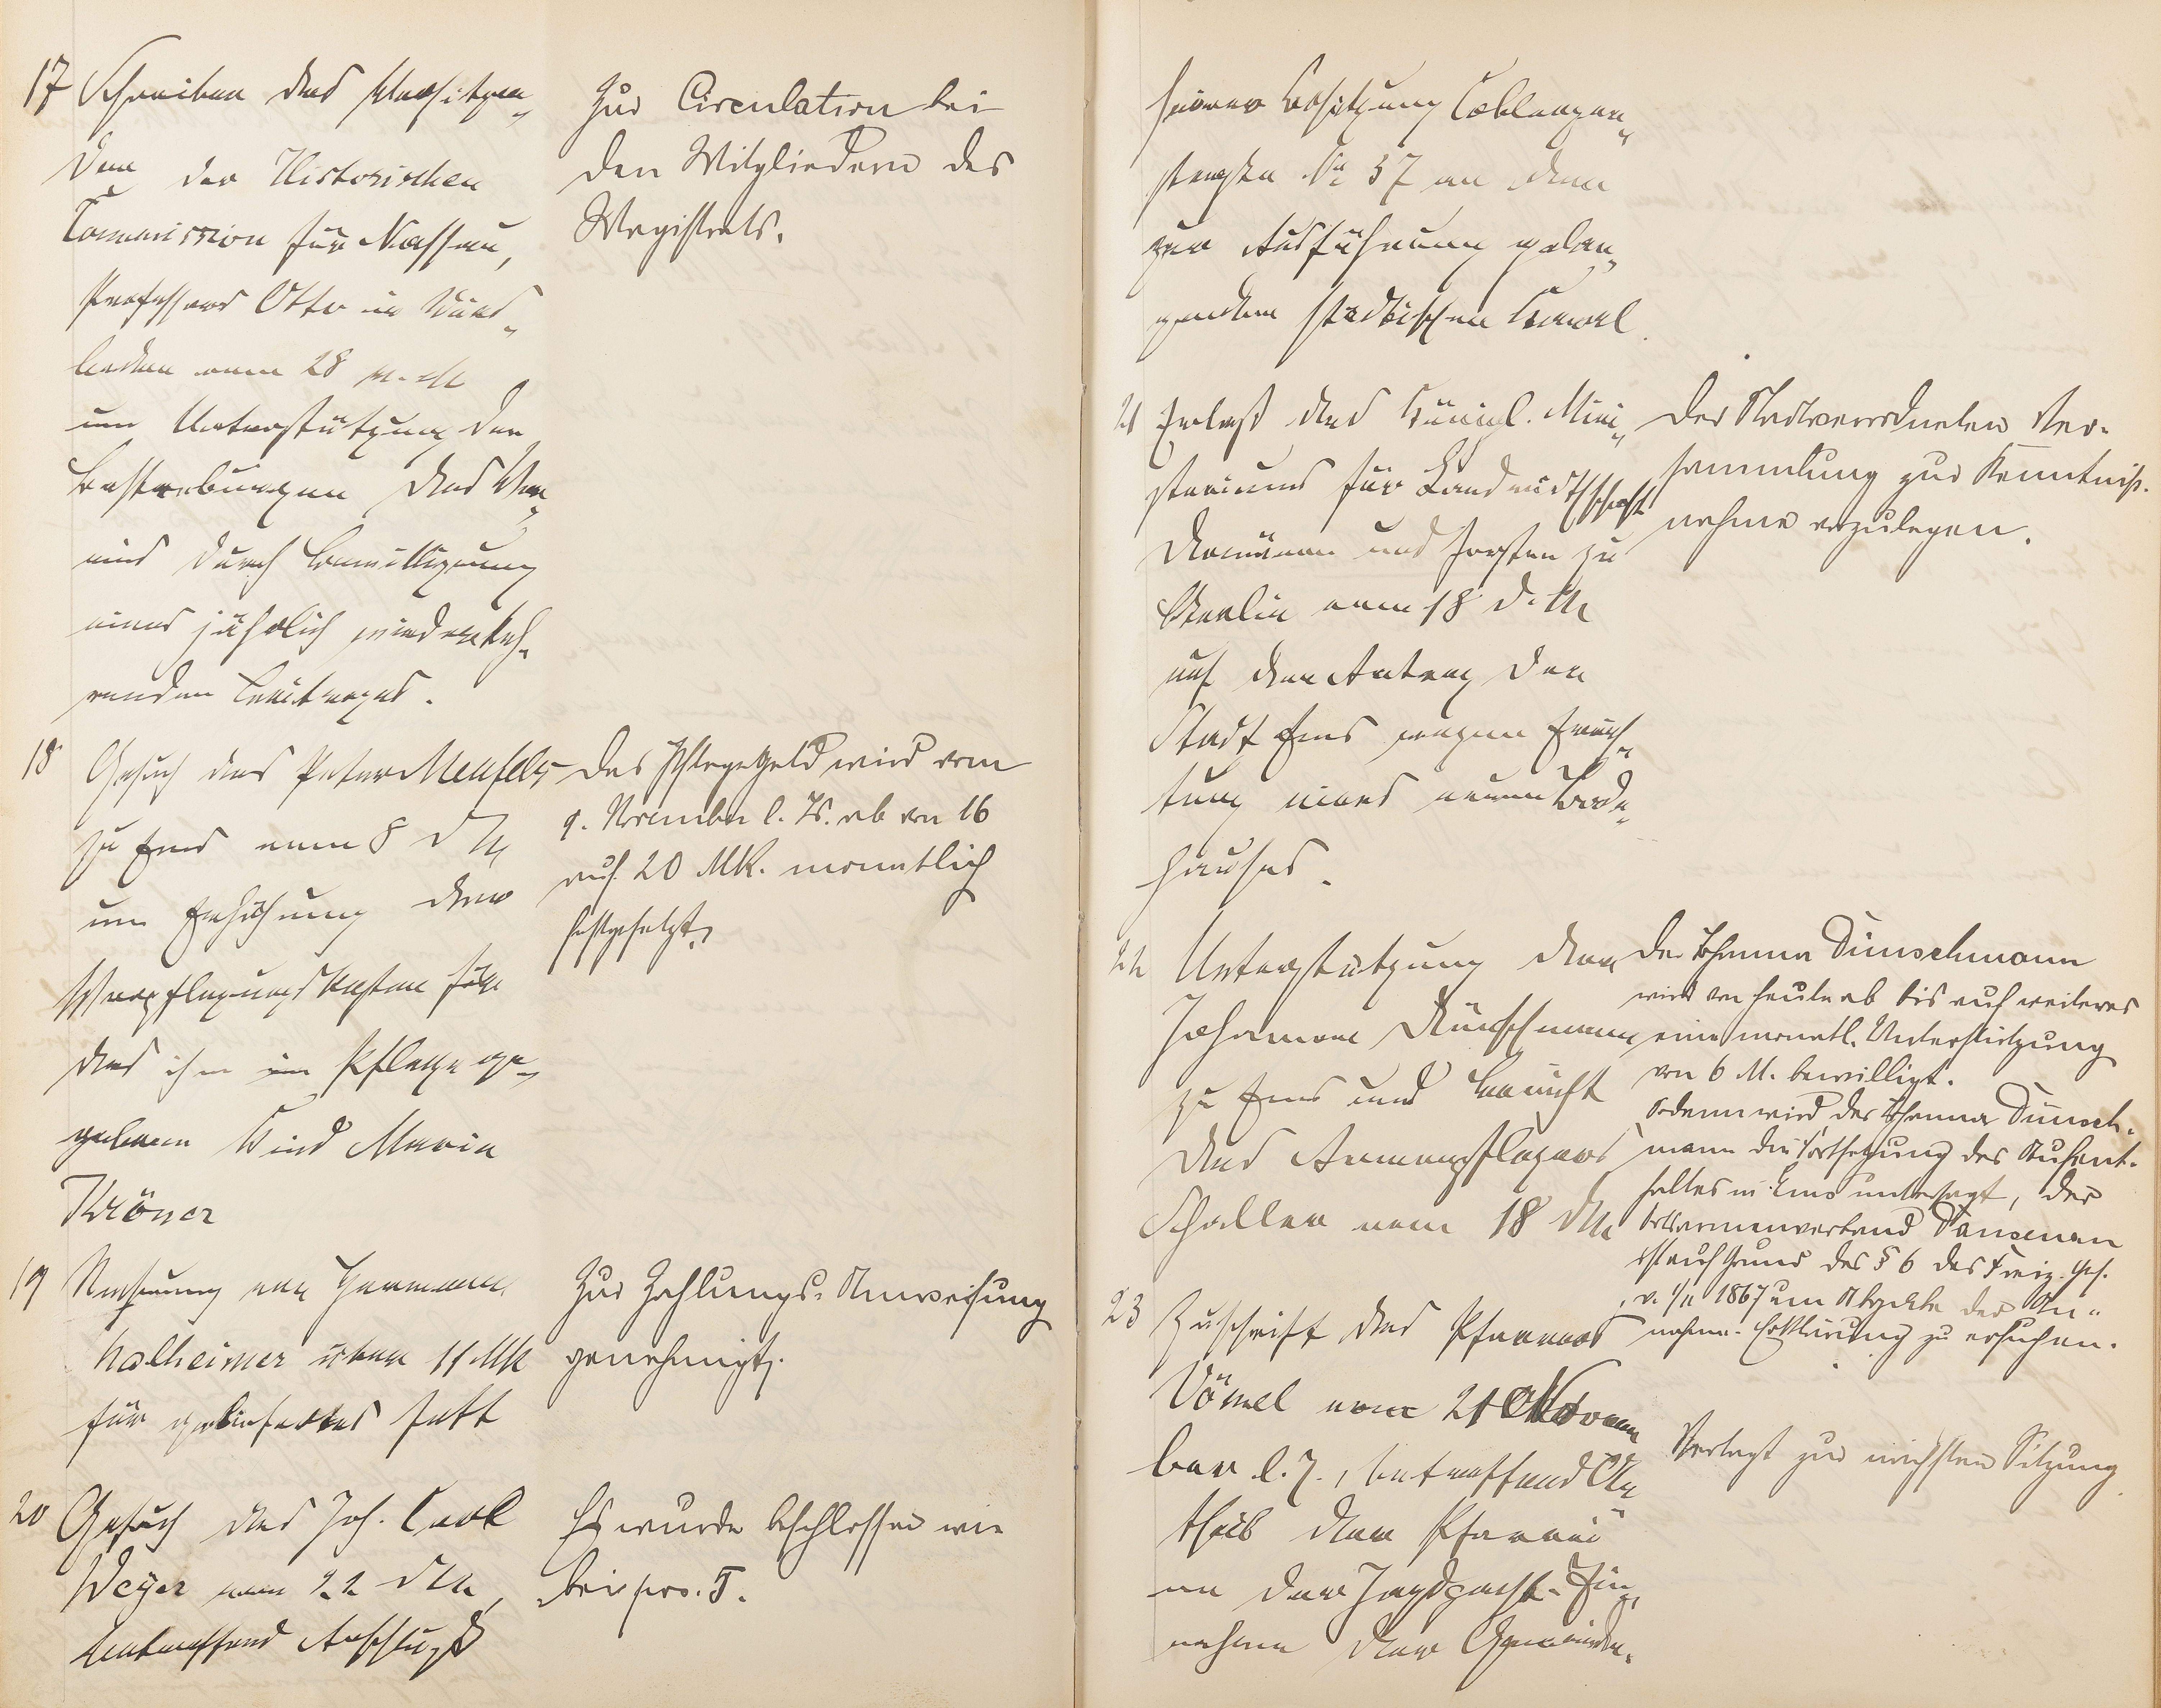 17 Schreiben des Vorsitzen„
den der Historischen
Commission für Nassau,
Professors Otto in Wies„
baden vom 28 v. M
um Unterstützung der
Bestrebungen des Ver„
eins durch Bewilligung
eines jährlich wiederkeh„
renden Beitrages.
Zur Circulation bei
den Mitgliedern des
Magistrats.
18 Gesuch des Peter
zu Ems vom 8 d M
um Erhöhung der
Verpflegungskosten für
das ihm in Pflege ge„
gebene Kind Maria
Kröner
Das Pflegegeld wird vom
1. November l. Js. ab von 16
auf 20 Mk. monatlich
festgesetzt.
19 Rechnung von Hermann
Kalheimer über 11 Mk
für geliefertes Fett
Zur Zahlungs-Anweisung
genehmigt.
20 Gesuch des Joh. Carl
Weyer vom 22 d M,
betreffend Anschluß
Es wurde beschlossen wie
bei pos. 5.
seiner Besitzung Coblenzer„
straße No 37 an den
zur Ausführung gelan„
genden städtischen Kanal.
21 Erlaß des Königl. Mini„
steriums für Landwirthschaft
Domänen und Forsten zu
Berlin vom 18 d. M
auf den Antrag der
Stadt Ems wegen Errich„
tung eines neuen Bade„
hauses.
Der Stadtverordneten Ver-
sammlung zur Kenntniß-
nahme vorzulegen.
22 Unterstützung der
Johanna Dünschmann
zu Ems und Bericht
des Armenpflegers
Schaller vom 18 d M
Der Johanna Dünschmann
wird von heute ab bis auf weiteres
eine monatl. Unterstützung
von 6 M. bewilligt.
Sodann wird der Johanna Dünsch-
mann die Fortsetzung des Aufent-
haltes in Ems untersagt, der
Ortsarmenverband Dausenau
ist auf Grund des § 6 des Freiz. Ges.
v. 1/11 1867 um Abgabe der An-
nahme-Erklärung zu ersuchen.
23 Zuschrift des Pfarrers
Vömel vom 21 Novem
ber l. J., betreffend An
theil der Pfarrei
an der Jagdpacht-Ein„
nahme der Gemeinde.
Vertagt zur nächsten Sitzung.